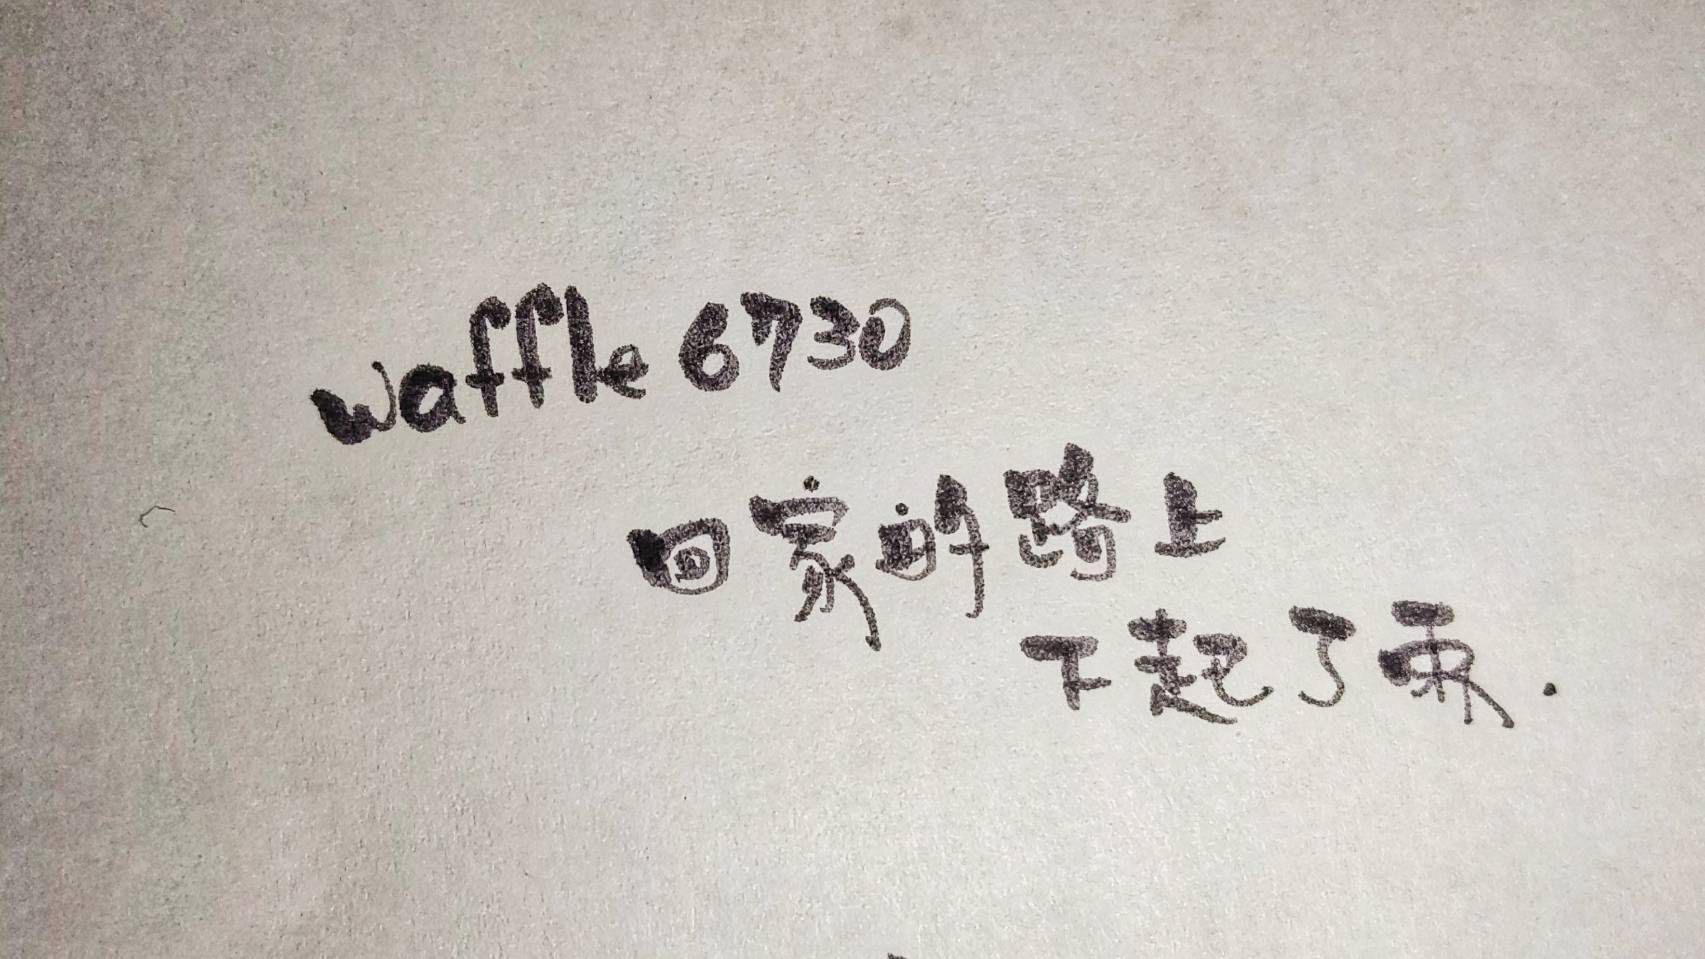 waffle 6730
回家的路上
下起了雨.